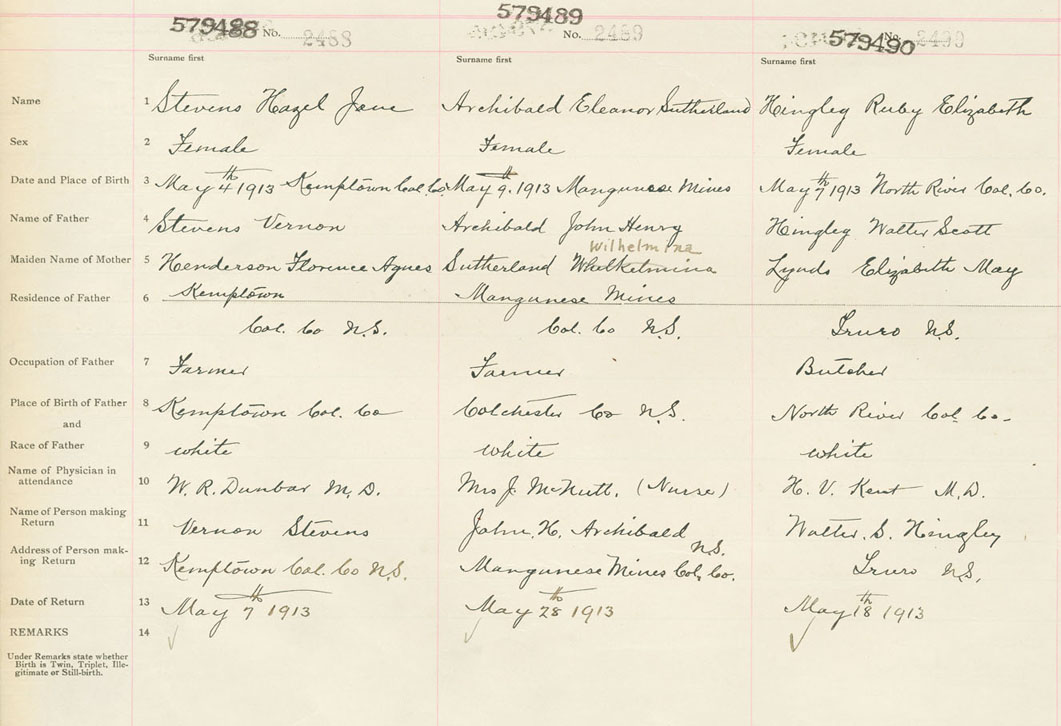 579488 No. 2488 579489 No. 2489 579490 No. 2490
Surname first Surname first Surname first
Name 1 Stevens Hazel Jane Archibald Eleanor Sutherland Hingley Ruby Elizabeth
Sex 2 Female Female Female
Date and Place of Birth 3 May 4th 1913 Kemptown Col. Co May 9th. 1913 Manganese Mines May 7th 1913 North River Col. Co.
Name of Father 4 Stevens Vernon Archibald John Henry Hingley Walter Scott
Wilhelmina
Maiden Name of Mother 5 Henderson Florence Agnes Sutherland Whelkelmina Lynds Elizabeth May
Residence of Father 6 Kemptown Manganese Mines
Col. Co N.S. Col. Co N.S. Truro N.S.
Occupation of Father 7 Farmer Farmer Butcher
Place of Birth of Father 8 Kemptown Col. Co Colchester Co N.S. North River Col. Co.
and
Race of Father 9 white white white
Name of Physician in
attendance 10 W. R. Dunbar M.D. Mrs J. McNutt. (Nurse) H. V. Kent M.D.
Name of Person making
Return 11 Vernon Stevens John H. Archibald Walter. S. Hingley
Address of Person mak-
ing Return 12 Kemptown Col. Co N.S. Manganese Mines Col. Co. N.S. Truro N.S.
Date of Return 13 May 7th 1913 May 28th 1913 May 18th 1913
REMARKS 14
Under Remarks state whether
Birth is Twin, Triplet, Ille-
gitimate or Still-birth.